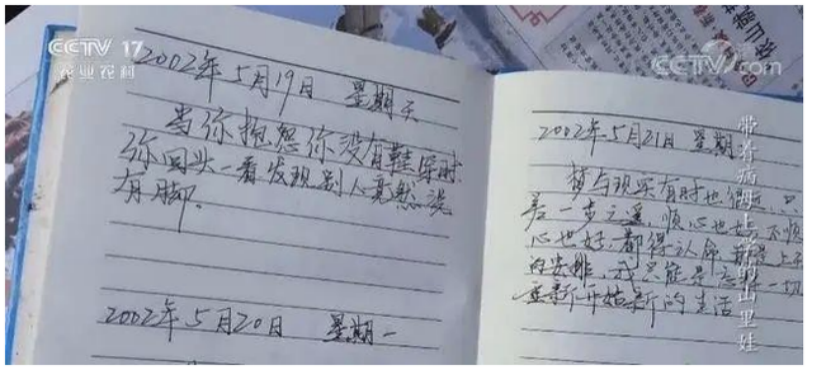 CCTV 17
农业农村
CCTV.com
2002年5月19日 星期天
当你抱怨你没有鞋穿时
你回头一看发现别人竟然没
有脚。
2002年5月20日 星期一
2002年5月21日 星期
梦与现实有时也很近,只
差一步之遥,顺心也好,不顺
心也好,都得认命,都是上天
的安排,我只能是忘掉一切
重新开始新的生活
带着病母上学的山里娃